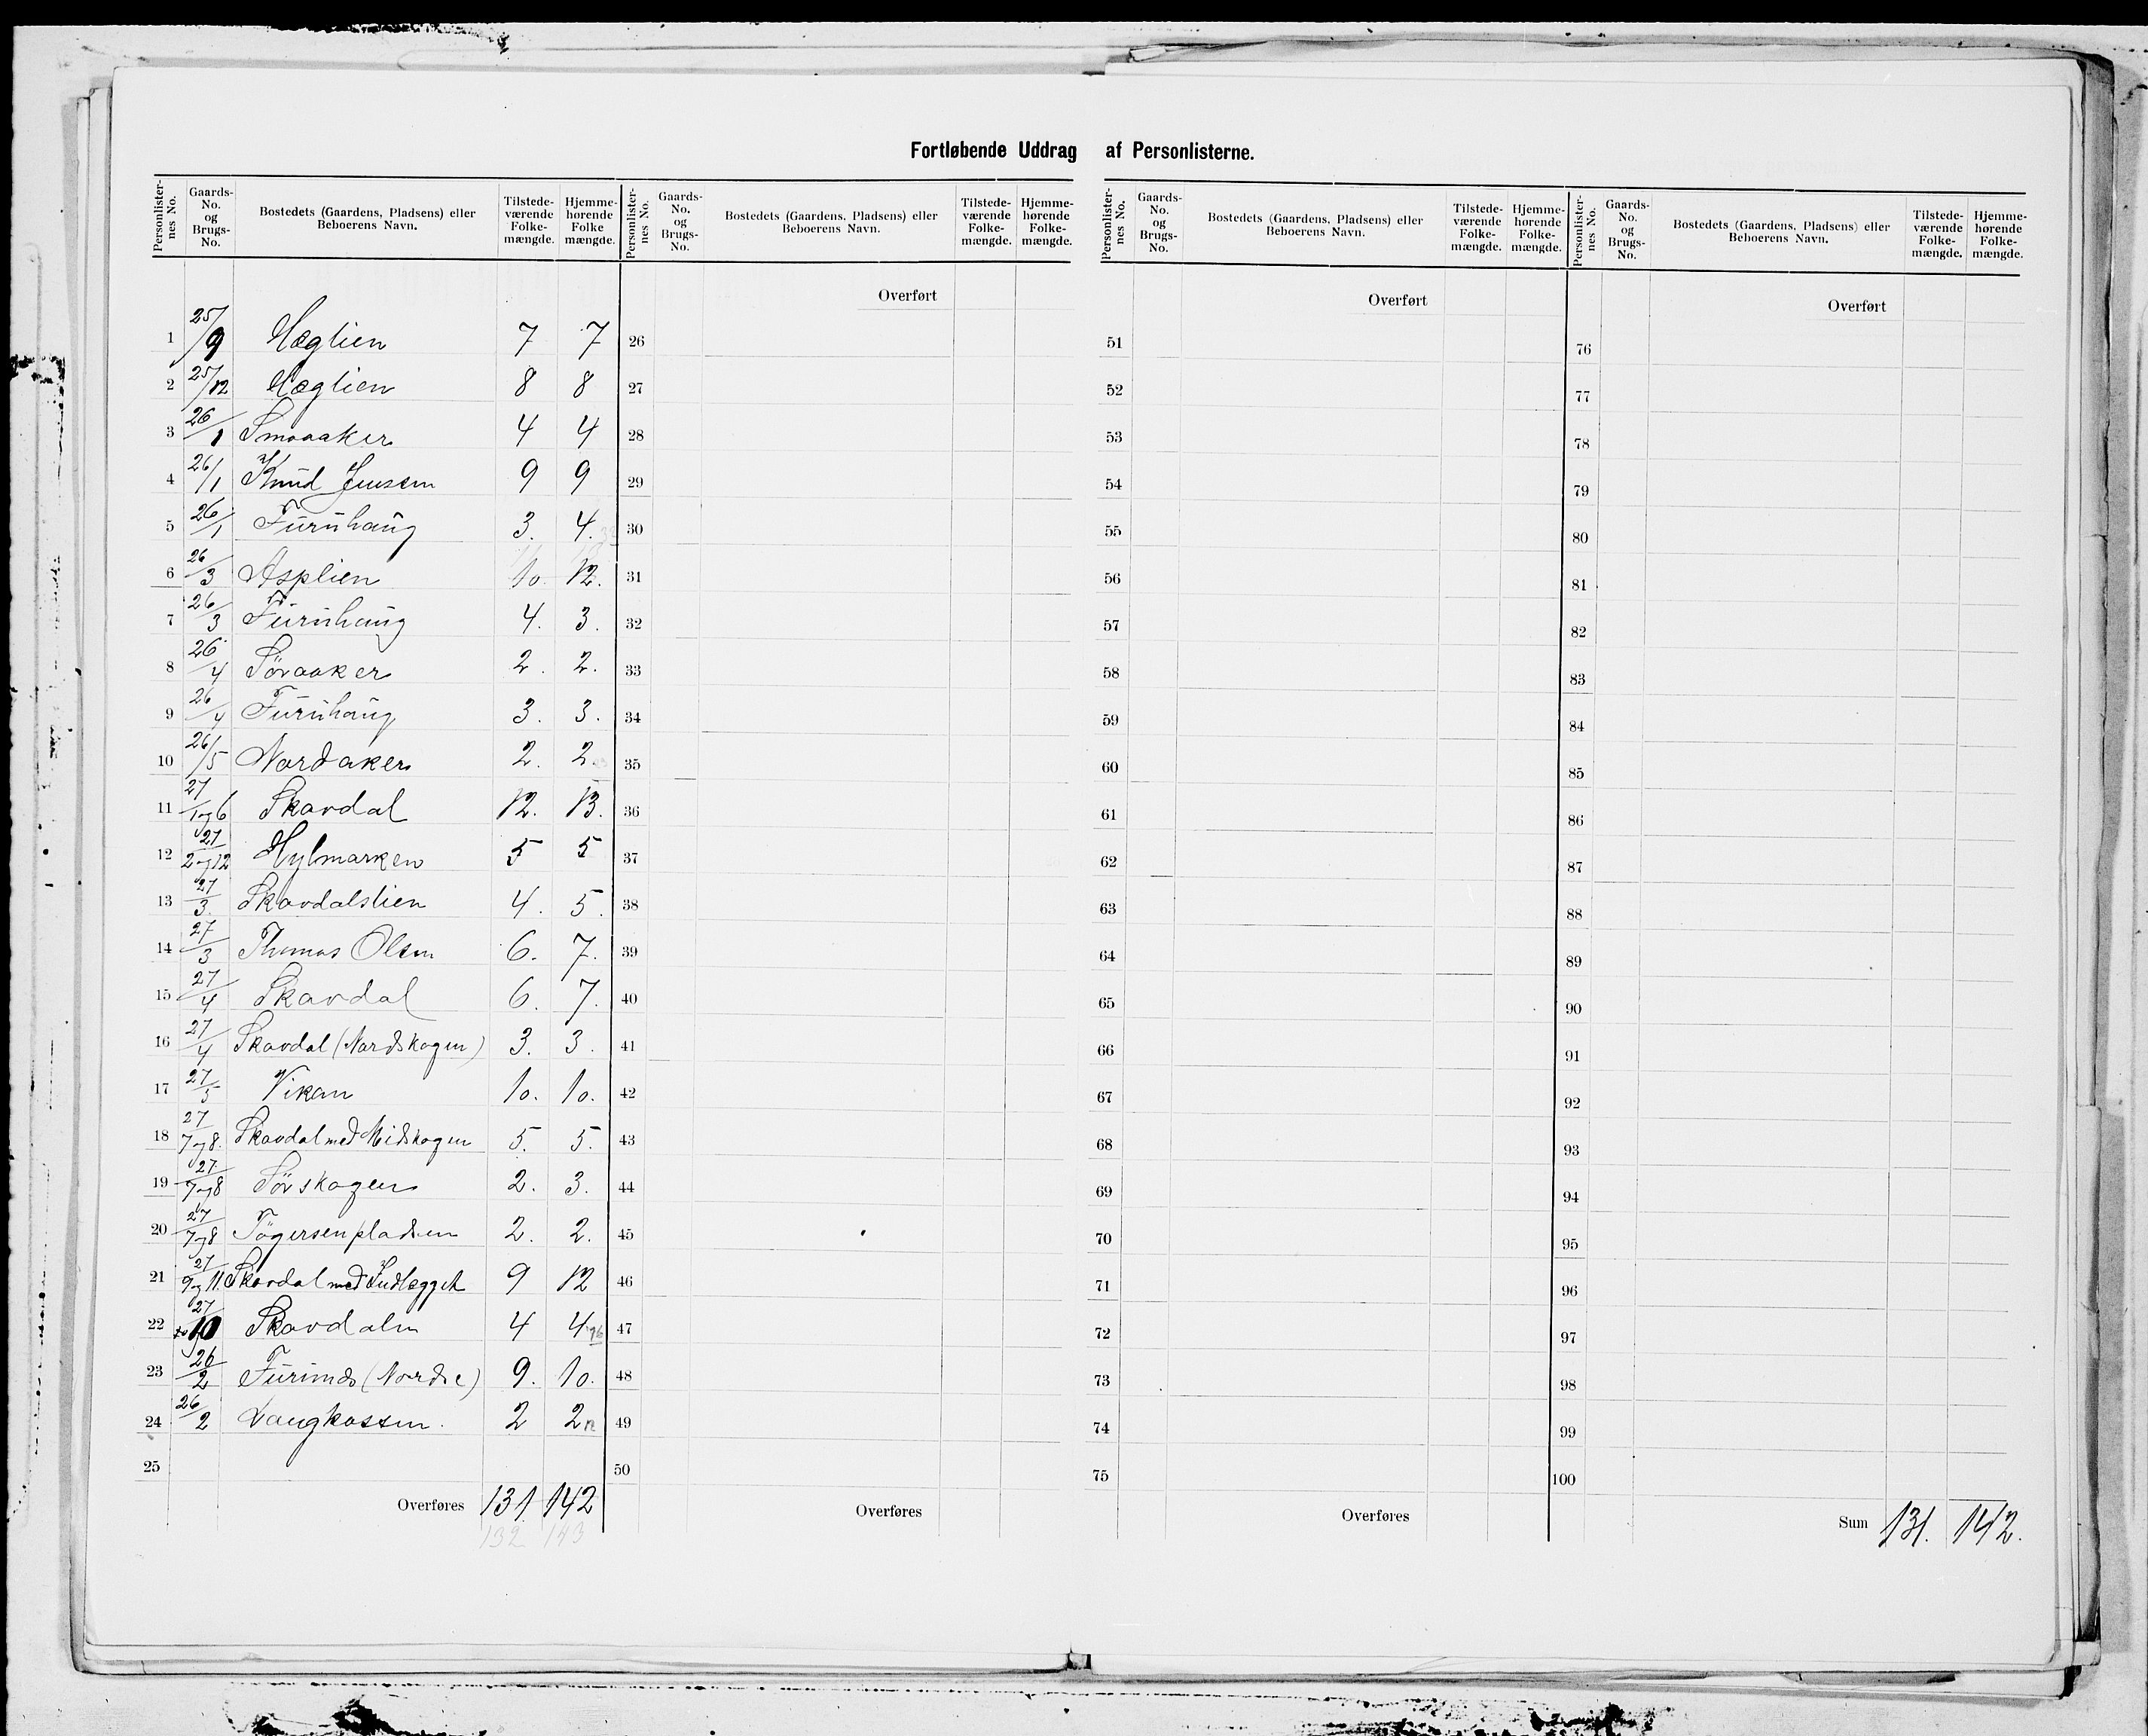 Fortløbende Uddrag af Personlisterne.
Personlister-nes No. Gaards-No. og Brugs-No. Bostedets (Gaardens, Pladsens) eller Beboerens Navn. Tilstede-værende Folke-mængde. Hjemme-hørende Folke mængde.
Personlister-nes No. Gaards-No. og Brugs-No. Bostedets (Gaardens, Pladsens) eller Beboerens Navn. Tilstede-værende Folke-mængde. Hjemme-hørende Folke-mængde.
Personlister-nes No. Gaards-No. og Brugs-No. Bostedets (Gaardens, Pladsens) eller Beboerens Navn. Tilstede-værende Folke-mængde. Hjemme-hørende Folke-mængde.
Personlister-nes No. Gaards-No. og Brugs-No. Bostedets (Gaardens, Pladsens) eller Beboerens Navn. Tilstede-værende Folke-mængde. Hjemme-hørende Folke-mængde.
Overført Overført Overført
1 25/9 Hæglien 7 7 26 51 76
2 25/12 Hæglien 8 8 27 52 77
3 26/1 Smaaaker 4 4 28 53 78
4 26/1 Knud Jenssen 9 9 29 54 79
5 26/1 Furuhaug 3. 4. 30 55 80
6 26/3 Asplien 10. 12. 31 56 81
7 26/3 Furuhaug 4. 3. 32 57 82
8 26/4 Søraaker 2. 2. 33 58 83
9 26/4 Furuhaug 3. 3. 34 59 84
10 26/5 Nordaker 2. 2 35 60 85
11 27/1og6 Skavdal 12. 13. 36 61 86
12 27/2og12 Hylmarken 5 5 37 62 87
13 27/3. Skavdalslien 4. 5. 38 63 88
14 27/3 Thomas Olsen 6. 7. 39 64 89
15 27/4 Skavdal 6. 7. 40 65 90
16 27/4 Skavdal (Nordskogen) 3. 3. 41 66 91
17 27/5 Vikan 10. 10. 42 67 92
18 27/7og8. Skavdal med Midskogen 5. 5. 43 68 93
19 27/7og8 Sörskogen 2. 3. 44 69 94
20 27/7og8 Tögersenpladsen 2. 2. 45 70 95
21 27/9og11. Skavdal med Indlægget 9 12 46 71 96
22 27/10 Skavdalen 4 4 47 72 97
23 26/2 Furunes (Nordre) 9. 10. 48 73 98
24 26/2 Langkassen. 2 2 49 74 99
25 50 75 100
Overføres 131. 142 Overføres Overføres Sum 131. 142.
132 143